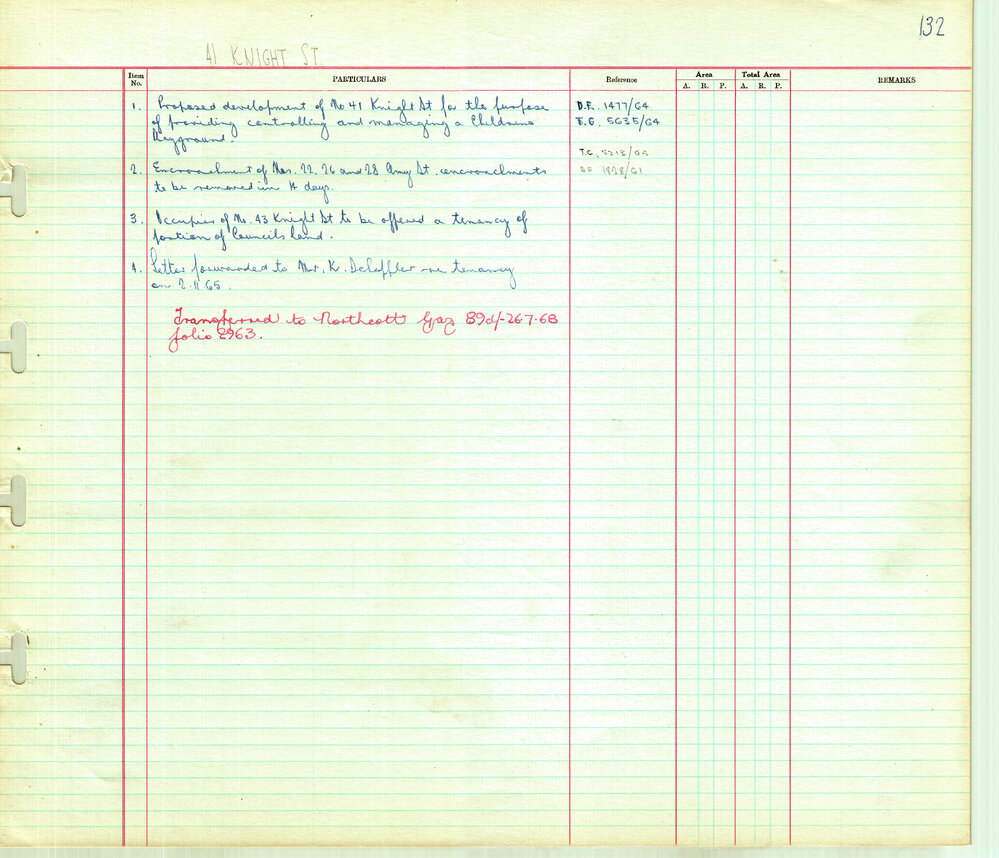 132
41 KNIGHT ST.
Item No. PARTICULARS Reference Area Total Area REMARKS
A. R. P. A. R. P.
1. Proposed development of No 41 Knight St for the purpose D.F. 1477/64
of providing controlling and managing a Childrens T.C. 5635/64
Playground.
T.C. 5213/65
2. Encroachment of Nos. 22, 26 and 28 Amy St. encroachments D.F. 1828/61
to be removed in 14 days.
3. Occupier of No. 43 Knight St to be offered a tenancy of
portion of Councils land.
4. Letter forwarded to Mr. K. Scheffler re tenancy
on 2.11.65.
Transferred to Northcott Gaz 89 d/- 26.7.68
folio 2963.